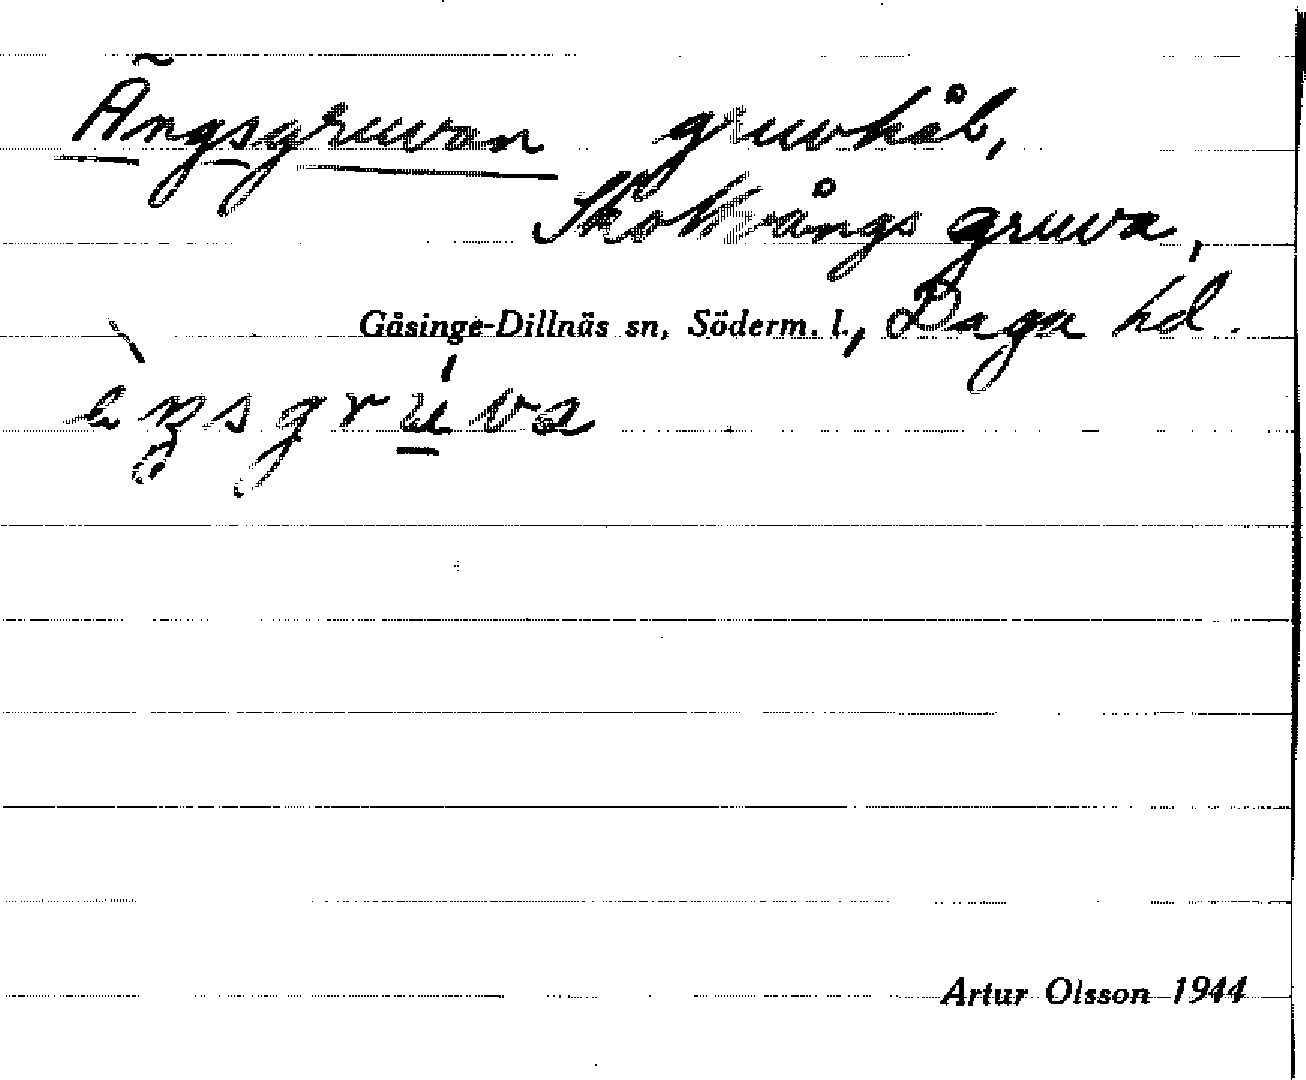 Ängsgruvan gruvhål,
Skottvångs gruva,
Gåsinge-Dillnäs sn, Söderm. l., Daga hd.
Artur Olsson 1944